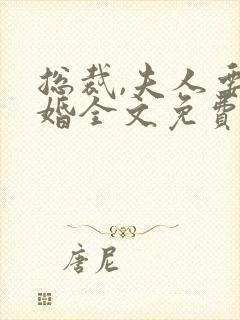 总裁,夫人要
婚全文免費
唐尼